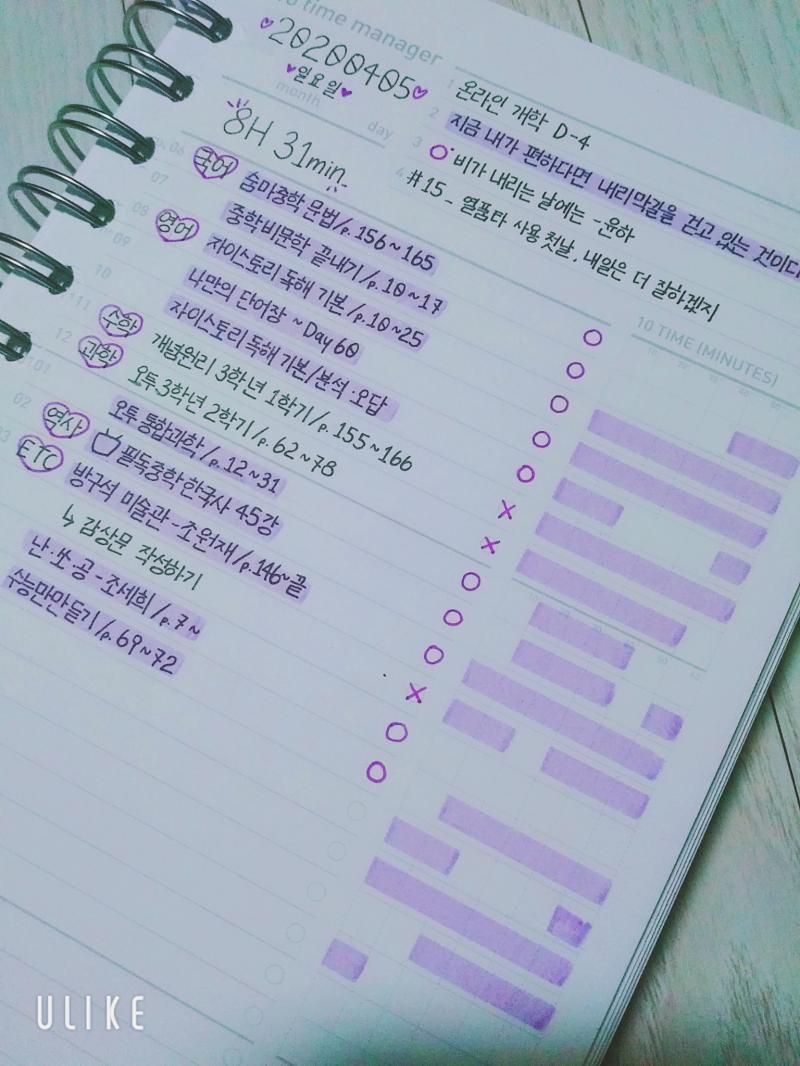 10 time manager
♥20200405♥
♥일요일♥
month
day
8H 31min
1 온라인 개학 D-4
2 지금 내가 편하다면 내리막길을 걷고 있는 것이다
3 비가 내리는 날에는 - 윤하
4 #15_ 열품타 사용 첫날, 내일은 더 잘하겠지
06 국어 숨마중학 문법/p.156~165 O
07 중학비문학 끝내기/p.10~17 O
08 영어 자이스토리 독해 기본/p.10~25 O
09 나만의 단어장 ~Day 60 O
10 자이스토리 독해 기본/분석·오답 O
11 수학 개념원리 3학년 1학기/p.155~166 X
12 과학 오투 3학년 2학기/p.62~78 X
01 오투 통합과학/p.12~31 O
02 역사 필독중학한국사 45강 O
03 ETC 방구석 미술관 - 조원재/p.146~끝 O
↳ 감상문 작성하기 X
난·쏘·공 - 조세희/p.7~ O
수능만만 듣기/p.69~72 O
10 TIME (MINUTES)
ULIKE